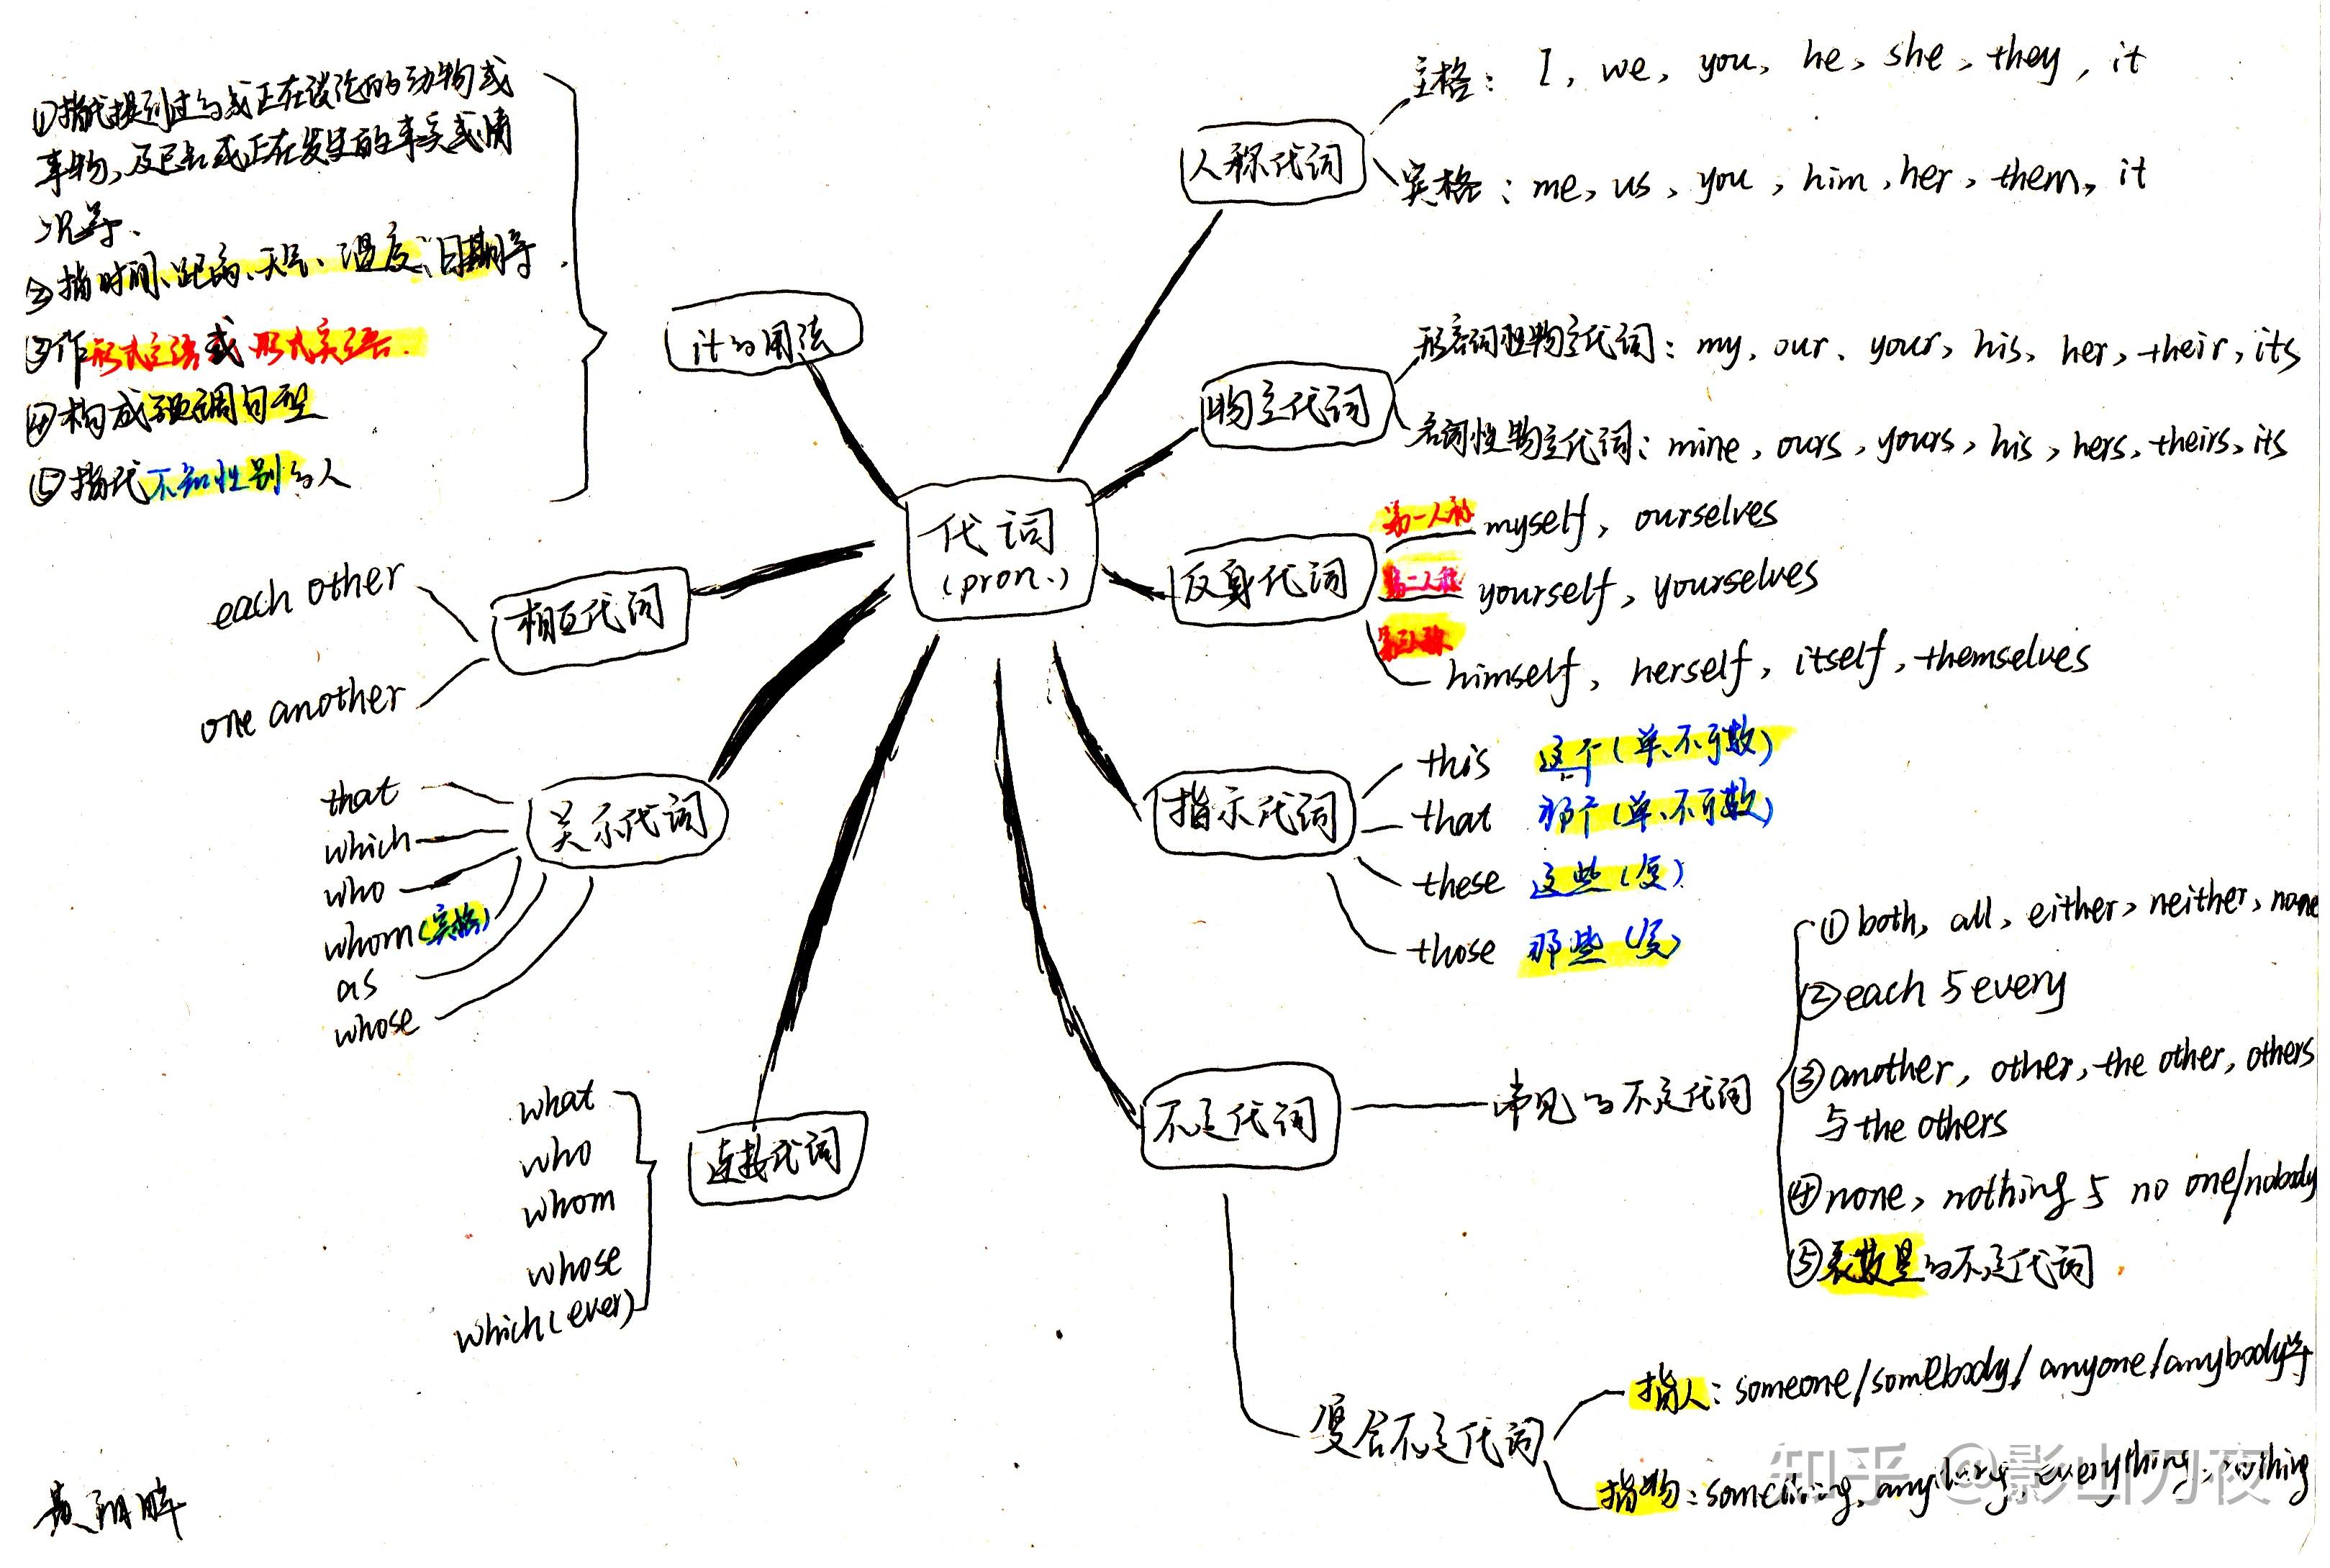 代词
(pron.)
人称代词
主格: I, we, you, he, she, they, it
宾格: me, us, you, him, her, them, it
物主代词
形容词性物主代词: my, our, your, his, her, their, its
名词性物主代词: mine, ours, yours, his, hers, theirs, its
反身代词
第一人称 myself, ourselves
第二人称 yourself, yourselves
第三人称 himself, herself, itself, themselves
指示代词
this 这个(单、不可数)
that 那个(单、不可数)
these 这些(复)
those 那些(复)
不定代词
常见的不定代词
①both, all, either, neither, none
②each与every
③another, other, the other, others
与the others
④none, nothing与 no one/nobody
⑤表数量的不定代词
复合不定代词
指人: someone/somebody/anyone/anybody等
指物: something, anything, everything, nothing
连接代词
what
who
whom
whose
which(ever)
关系代词
that
which
who
whom(宾格)
as
whose
相互代词
each other
one another
it的用法
①指代提到过的或正在谈论的动物或
事物,及已知或正在发生的事实或情
况等.
②指时间、距离、天气、温度、日期等.
③作形式主语或形式宾语.
④构成强调句型
⑤指代不知性别的人
知乎 @影山刀夜